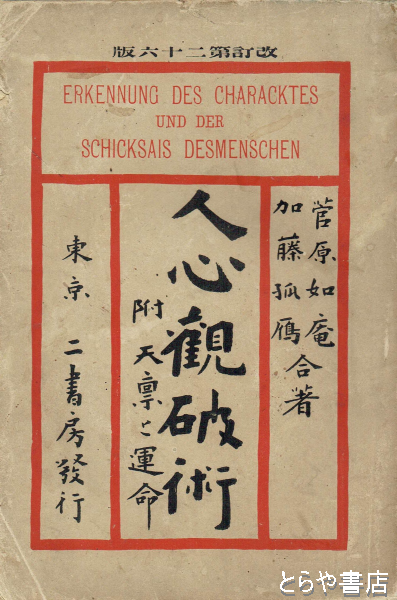 改訂第二十六版
ERKENNUNG DES CHARACKTES
UND DER
SCHICKSAIS DESMENSCHEN
菅原如庵
加藤孤鴈 合著
人心觀破術
附 天禀と運命
東京 二書房發行
とらや書店